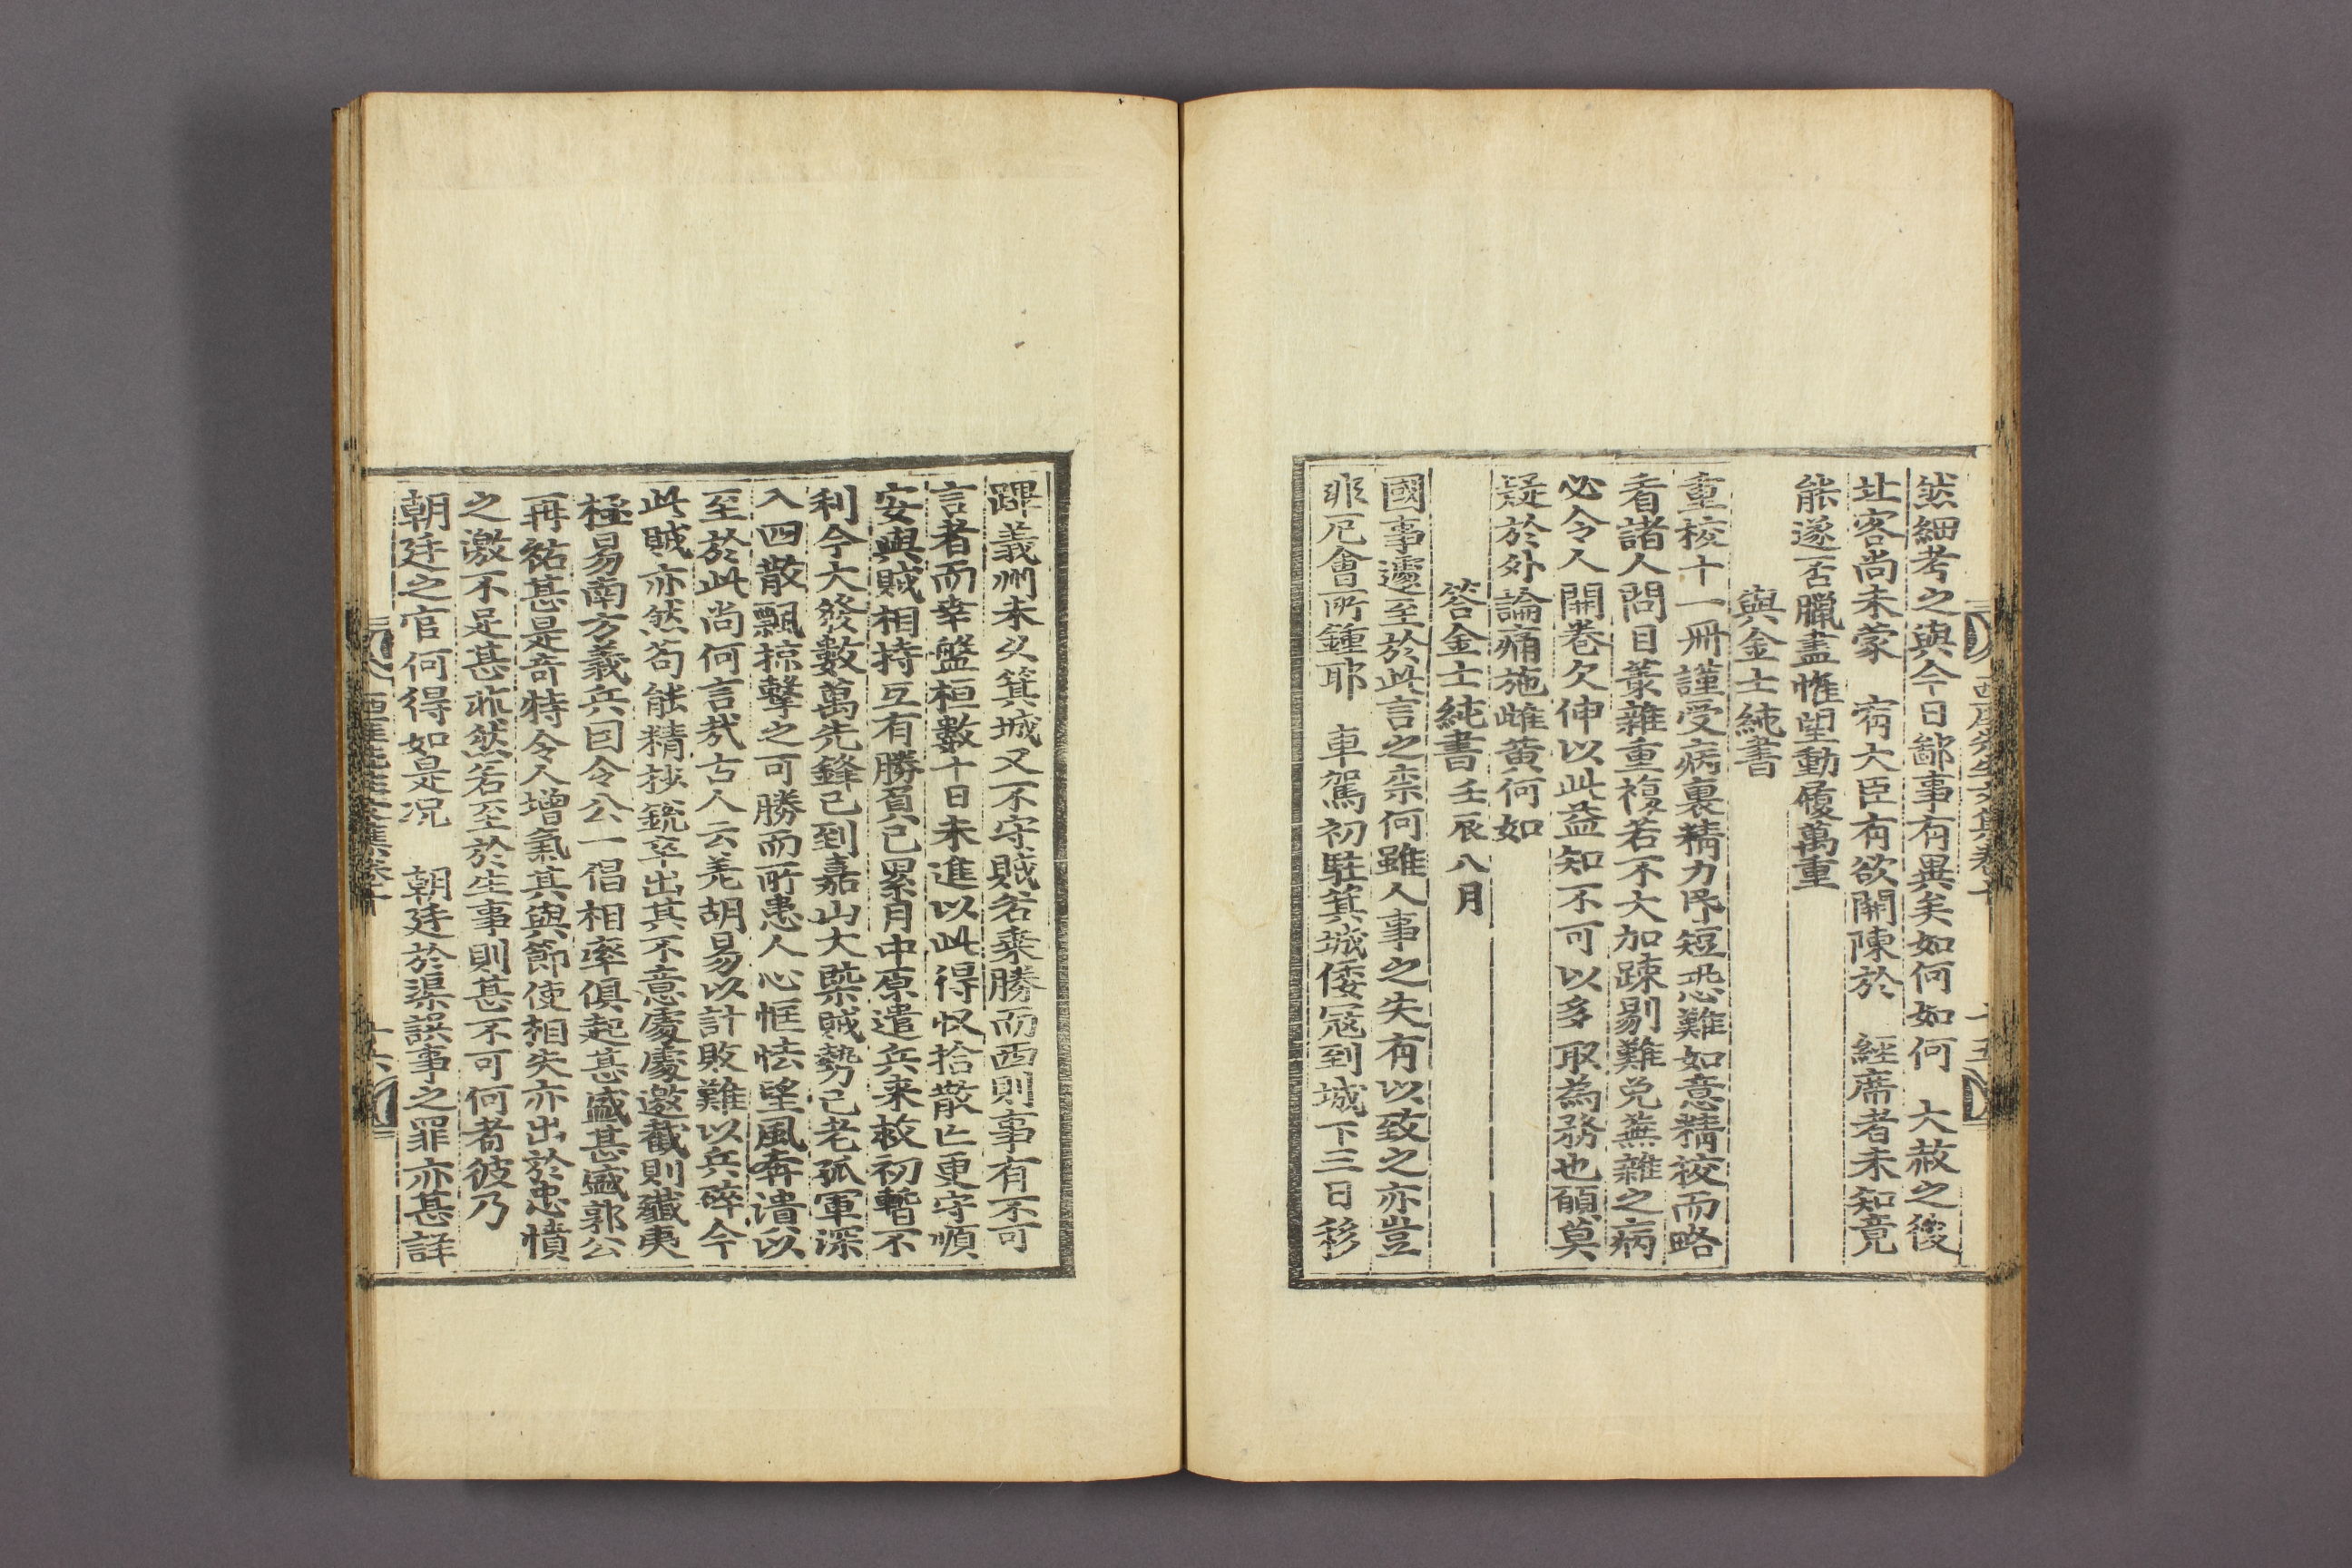 西厓先生文集卷十 十五
然細考之與今日鄙事有異矣如何如何 大赦之後
北客尚未蒙 宥大臣有欲開陳於 經席者未知竟
能遂否臘盡惟望動履萬重
與金士純書
重校十一冊謹受病裏精力昂短恐難如意精校而略
看諸人問目叢雜重複若不大加疎剔難免蕪雜之病
必令人開卷欠伸以此益知不可以多取為務也願莫
疑於外論痛施雌黃何如
答金士純書 壬辰八月
國事遽至於此言之柰何雖人事之失有以致之亦豈
非厄會所鍾耶 車駕初駐箕城倭寇到城下三日移
蹕義州未久箕城又不守賊若乘勝而西則事有不可
言者而幸盤桓數十日未進以此得收拾散亡更守順
安與賊相持互有勝負已累月中原遣兵來救初暫不
利今大發數萬先鋒已到嘉山大槩賊勢已老孤軍深
入四散飄掠擊之可勝而所患人心恇怯望風奔潰以
至於此尚何言哉古人云羌胡易以計敗難以兵碎今
此賊亦然苟能精抄銃卒出其不意處處邀截則殲夷
極易南方義兵因令公一倡相率俱起甚盛甚盛郭公
再祐甚是奇特令人增氣其與節使相失亦出於忠憤
之激不足甚非然若至於生事則甚不可何者彼乃
朝廷之官何得如是况 朝廷於渠誤事之罪亦甚詳
西厓先生文集卷十 十六